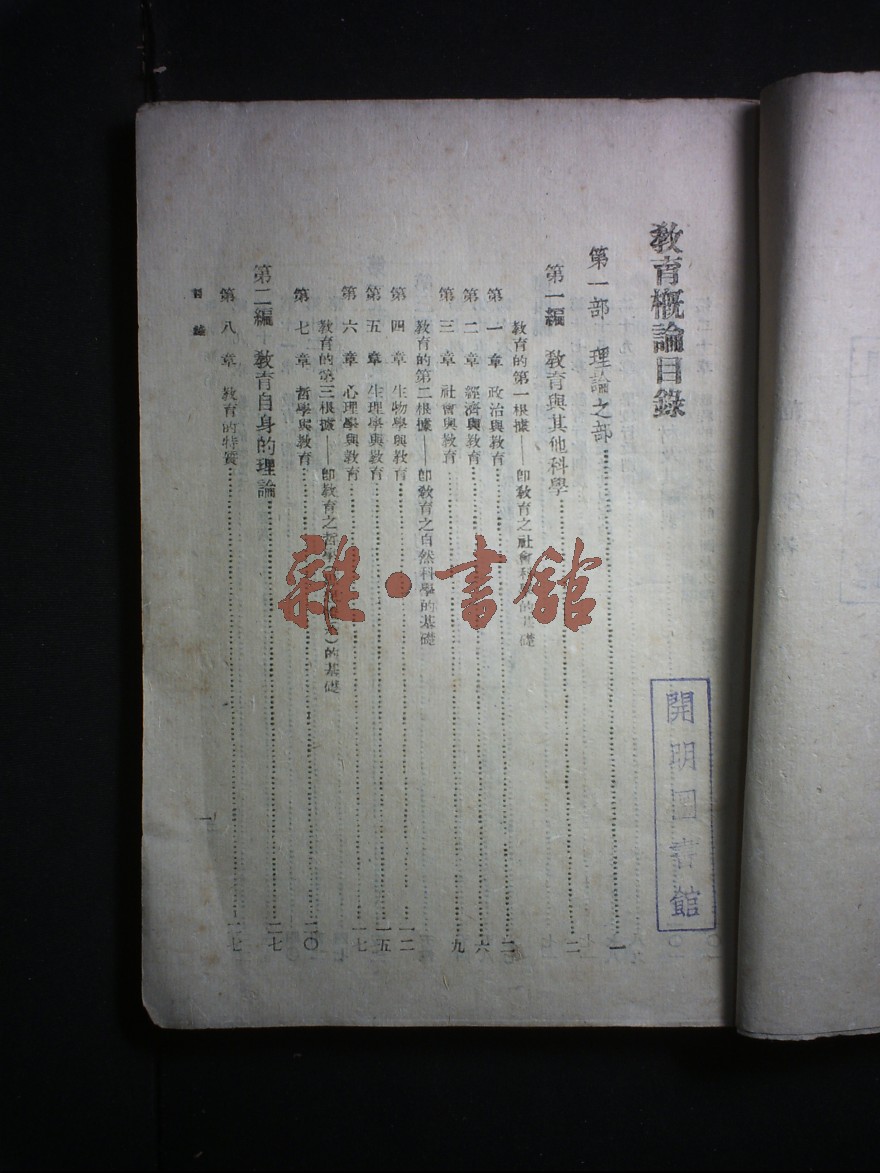 教育概論目錄
第一部 理論之部……一
第一編 教育與其他科學……二
教育的第一根據——即教育之社會科 的基礎
第一章 政治與教育……二
第二章 經濟與教育……六
第三章 社會與教育……九
教育的第二根據——即教育之自然科學的基礎
第四章 生物學與教育……一二
第五章 生理學與教育……一五
第六章 心理學與教育……一七
教育的第三根據——即教育之哲學 )的基礎
第七章 哲學與教育……二〇
第二編 教育自身的理論……二七
第八章 教育的特質……二七
目錄
一
開明圖書館
雜·書館